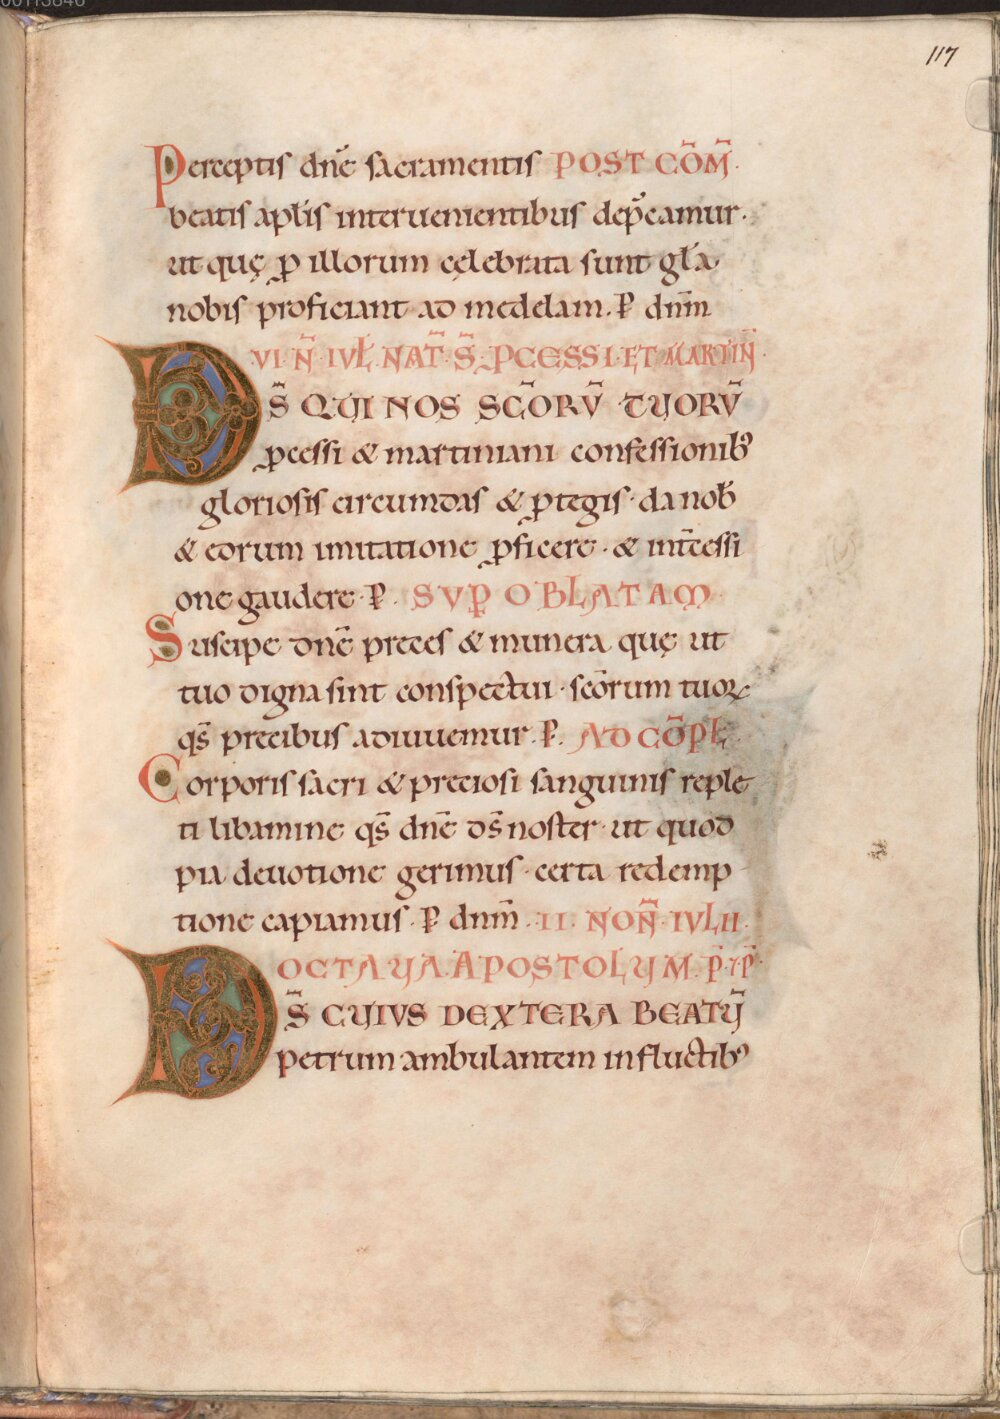 117
Perceptis dn̄e sacramentis POST CŌM̄.
beatis apl̄is interuenientibus dep̄camur.
ut quę ꝑ illorum cęlebrata sunt gl̄a.
nobis proficiant ad medelam. P̱ dn̄m
VI. N̄. IVL̄. NAT̄. S̄. PCESSI. ET MARTIN̄.
DS̄ QUI NOS SC̄ORV̄ TUORV̄
ꝓcessi & martiniani confessionib᾽
gloriosis circumdas & ꝓtegis. da nob̄
& eorum imitatione ꝓficere. & int̄cessi
one gaudere. P̱. SVꝐ OBLATAM
Suscipe dn̄e preces & munera quę ut
tuo digna sint conspectui. sc̄orum tuoꝝ
qs̄ precibus adiuuemur. P̱. AD CŌPL̄
Corporis sacri & preciosi sanguinis reple
ti libamine qs̄ dn̄e ds̄ noster. ut quod
pia deuotione gerimus. certa redemp
tione capiamus. P̱ dn̄m. II. NOÑ. IVLII.
OCTAUA. APOSTOLUM. P̄. 7 P̄.
DS̄ CUIVS DEXTERA BEATŪ
petrum ambulantem in fluctib᾽